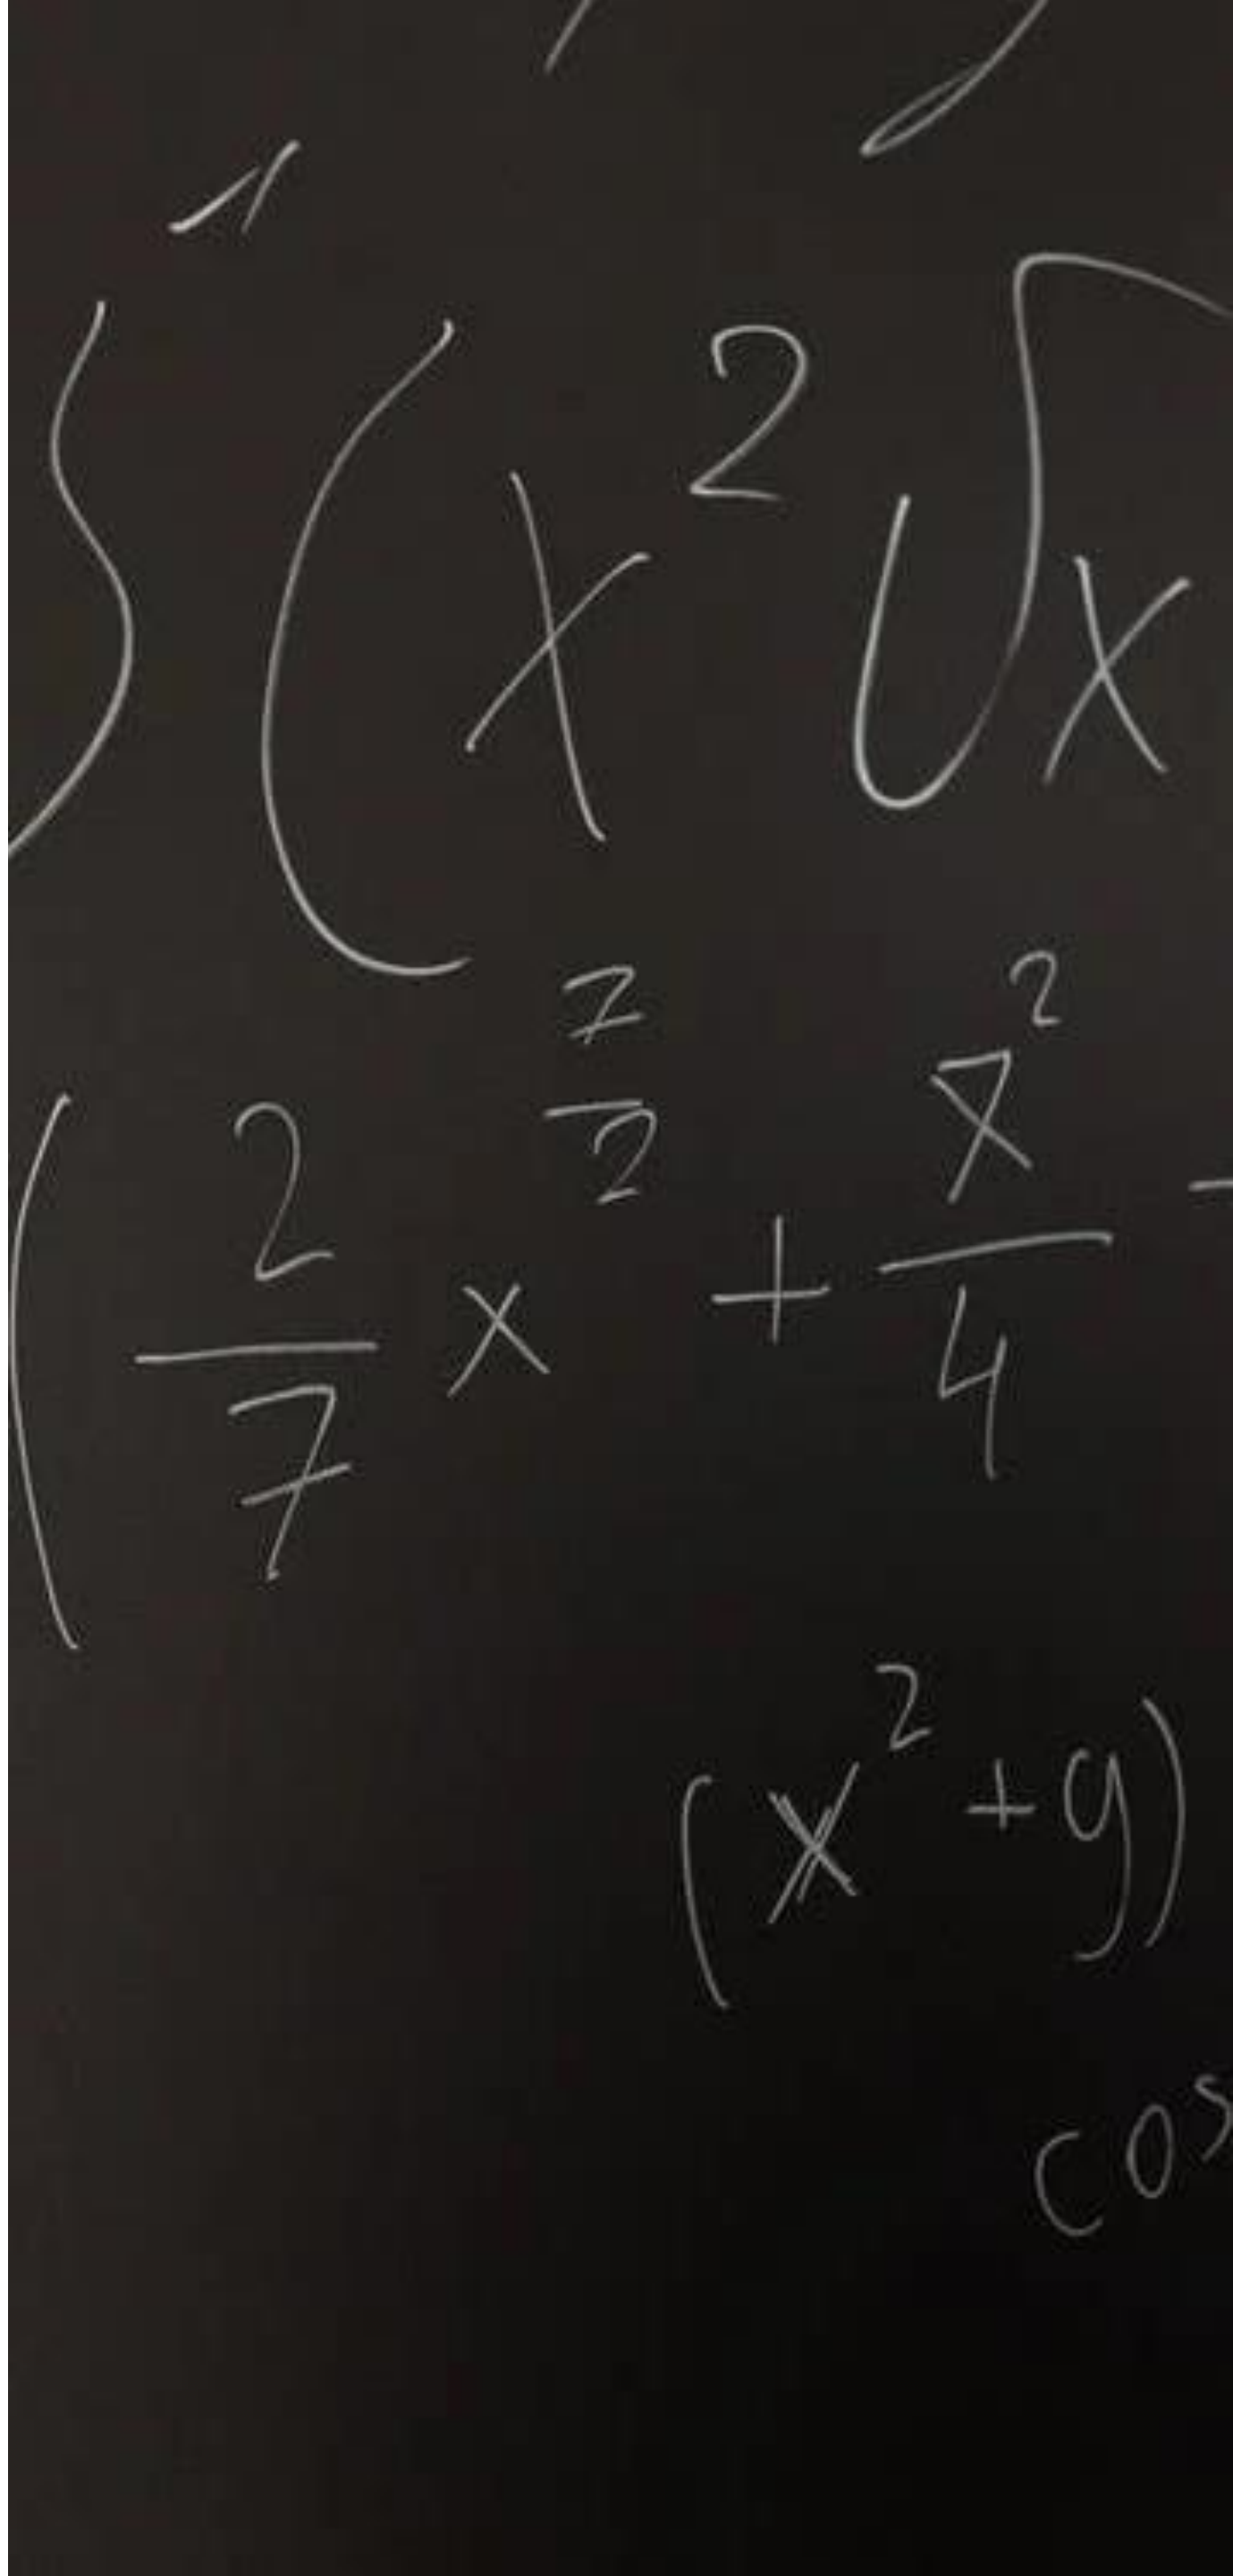 1
(x² √x
(2/7 x^(7/2) + x²/4 -
(x² + y)
cos